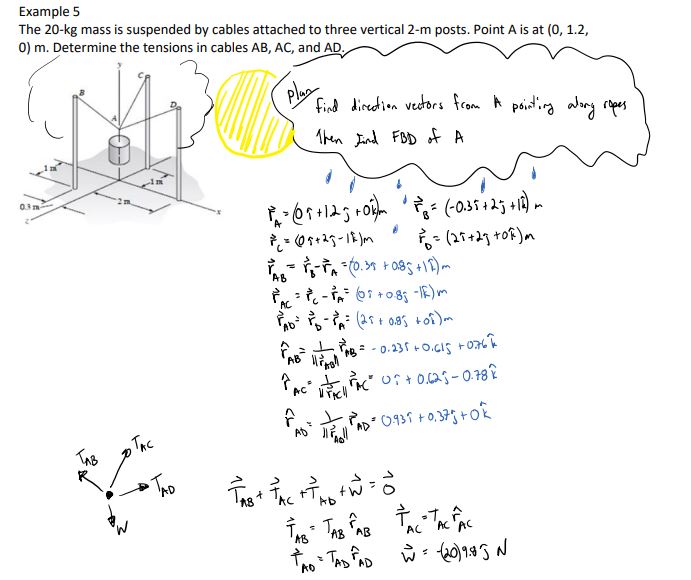 Example 5
The 20-kg mass is suspended by cables attached to three vertical 2-m posts. Point A is at (0, 1.2,
0) m. Determine the tensions in cables AB, AC, and AD.
y
C
B
D
A
1 m
1 m
2 m
0.3 m
z
x
Plan
find direction vectors from A pointing along ropes
Then find FBD of A
r⃗_A = (0î + 1.2ĵ + 0k̂)m r⃗_B = (-0.3î + 2ĵ + 1k̂) m
r⃗_C = (0î + 2ĵ - 1k̂)m r⃗_D = (2î + 2ĵ + 0k̂)m
r⃗_AB = r⃗_B - r⃗_A = (-0.3î + 0.8ĵ + 1k̂)m
r⃗_AC = r⃗_C - r⃗_A = (0î + 0.8ĵ - 1k̂)m
r⃗_AD = r⃗_D - r⃗_A = (2î + 0.8ĵ + 0k̂)m
r̂_AB = 1/||r⃗_AB|| r⃗_AB = -0.23î + 0.61ĵ + 0.76k̂
r̂_AC = 1/||r⃗_AC|| r⃗_AC = 0î + 0.62ĵ - 0.78k̂
r̂_AD = 1/||r⃗_AD|| r⃗_AD = 0.93î + 0.37ĵ + 0k̂
T_AB
T_AC
T_AD
W
T⃗_AB + T⃗_AC + T⃗_AD + W⃗ = 0⃗
T⃗_AB = T_AB r̂_AB T⃗_AC = T_AC r̂_AC
T⃗_AD = T_AD r̂_AD W⃗ = -(20)9.8ĵ N